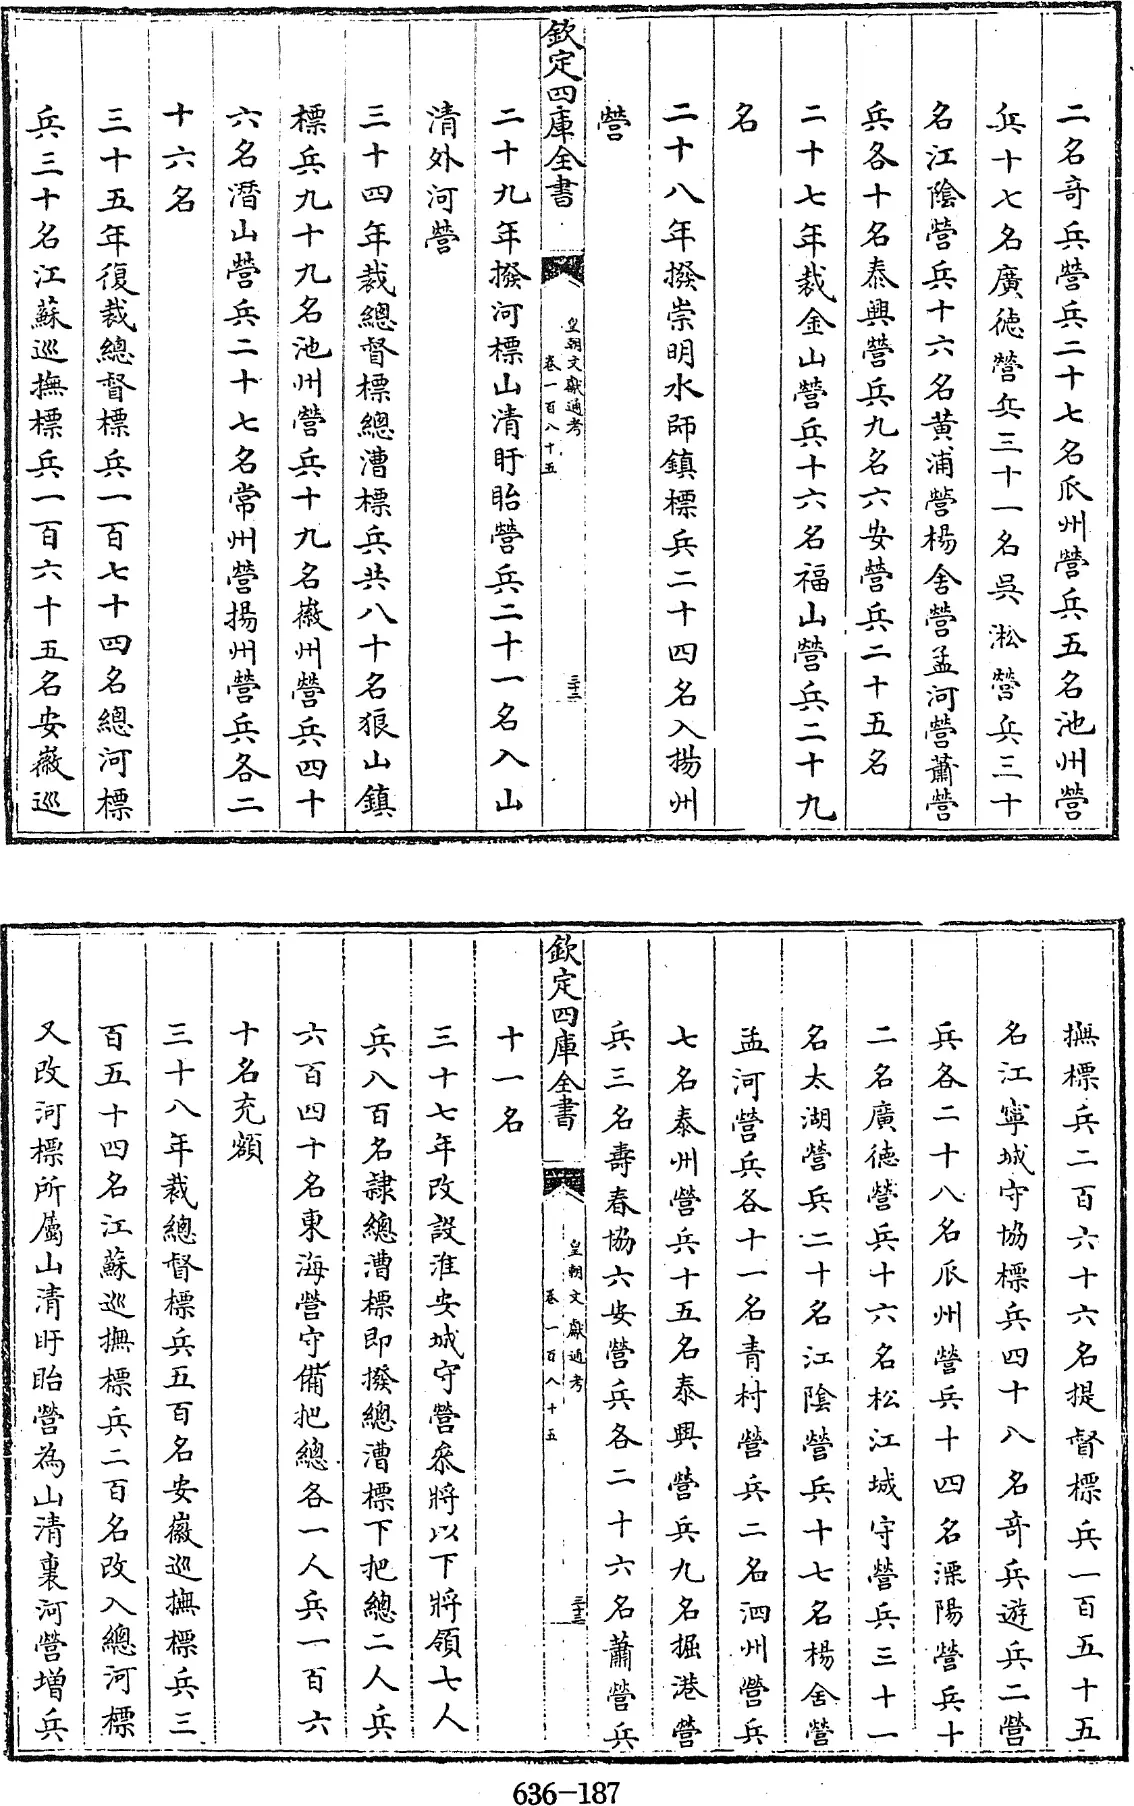 二名竒兵營兵二十七名瓜州營兵五名池州營
兵十七名廣徳營兵三十一名吳淞營兵三十
名江陰營兵十六名黄浦營楊舍營孟河營蕭營
兵各十名泰興營兵九名六安營兵二十五名
二十七年裁金山營兵十六名福山營兵二十九
名
二十八年撥崇明水師鎮標兵二十四名入揚州
營
欽定四庫全書
皇朝文獻通考
卷一百八十五
三十二
二十九年撥河標山清盱眙營兵二十一名入山
清外河營
三十四年裁總督標總漕標兵共八十名狼山鎮
標兵九十九名池州營兵十九名徽州營兵四十
六名潛山營兵二十七名常州營揚州營兵各二
十六名
三十五年復裁總督標兵一百七十四名總河標
兵三十名江蘇巡撫標兵一百六十五名安徽巡
撫標兵二百六十六名提督標兵一百五十五
名江寧城守協標兵四十八名竒兵遊兵二營
兵各二十八名瓜州營兵十四名溧陽營兵十
二名廣徳營兵十六名松江城守營兵三十一
名太湖營兵二十名江陰營兵十七名楊舍營
孟河營兵各十一名青村營兵二名泗州營兵
七名泰州營兵十五名泰興營兵九名掘港營
兵三名壽春協六安營兵各二十六名蕭營兵
欽定四庫全書
皇朝文獻通考
卷一百八十五
三十三
十一名
三十七年改設淮安城守營叅將以下將領七人
兵八百名隸總漕標即撥總漕標下把總二人兵
六百四十名東海營守備把總各一人兵一百六
十名充額
三十八年裁總督標兵五百名安徽巡撫標兵三
百五十四名江蘇巡撫標兵二百名改入總河標
又改河標所屬山清盱眙營為山清裏河營增兵
636-187